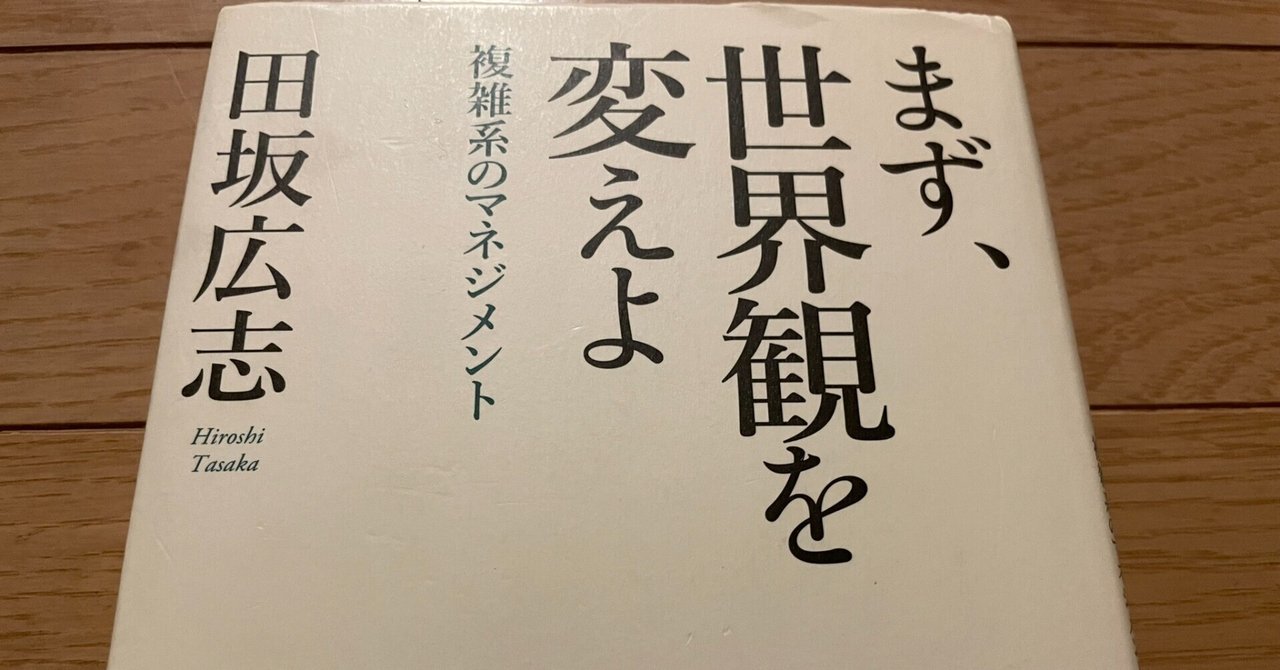 まず、
世界観を
変えよ
複雑系のマネジメント
田坂広志
Hiroshi
Tasaka